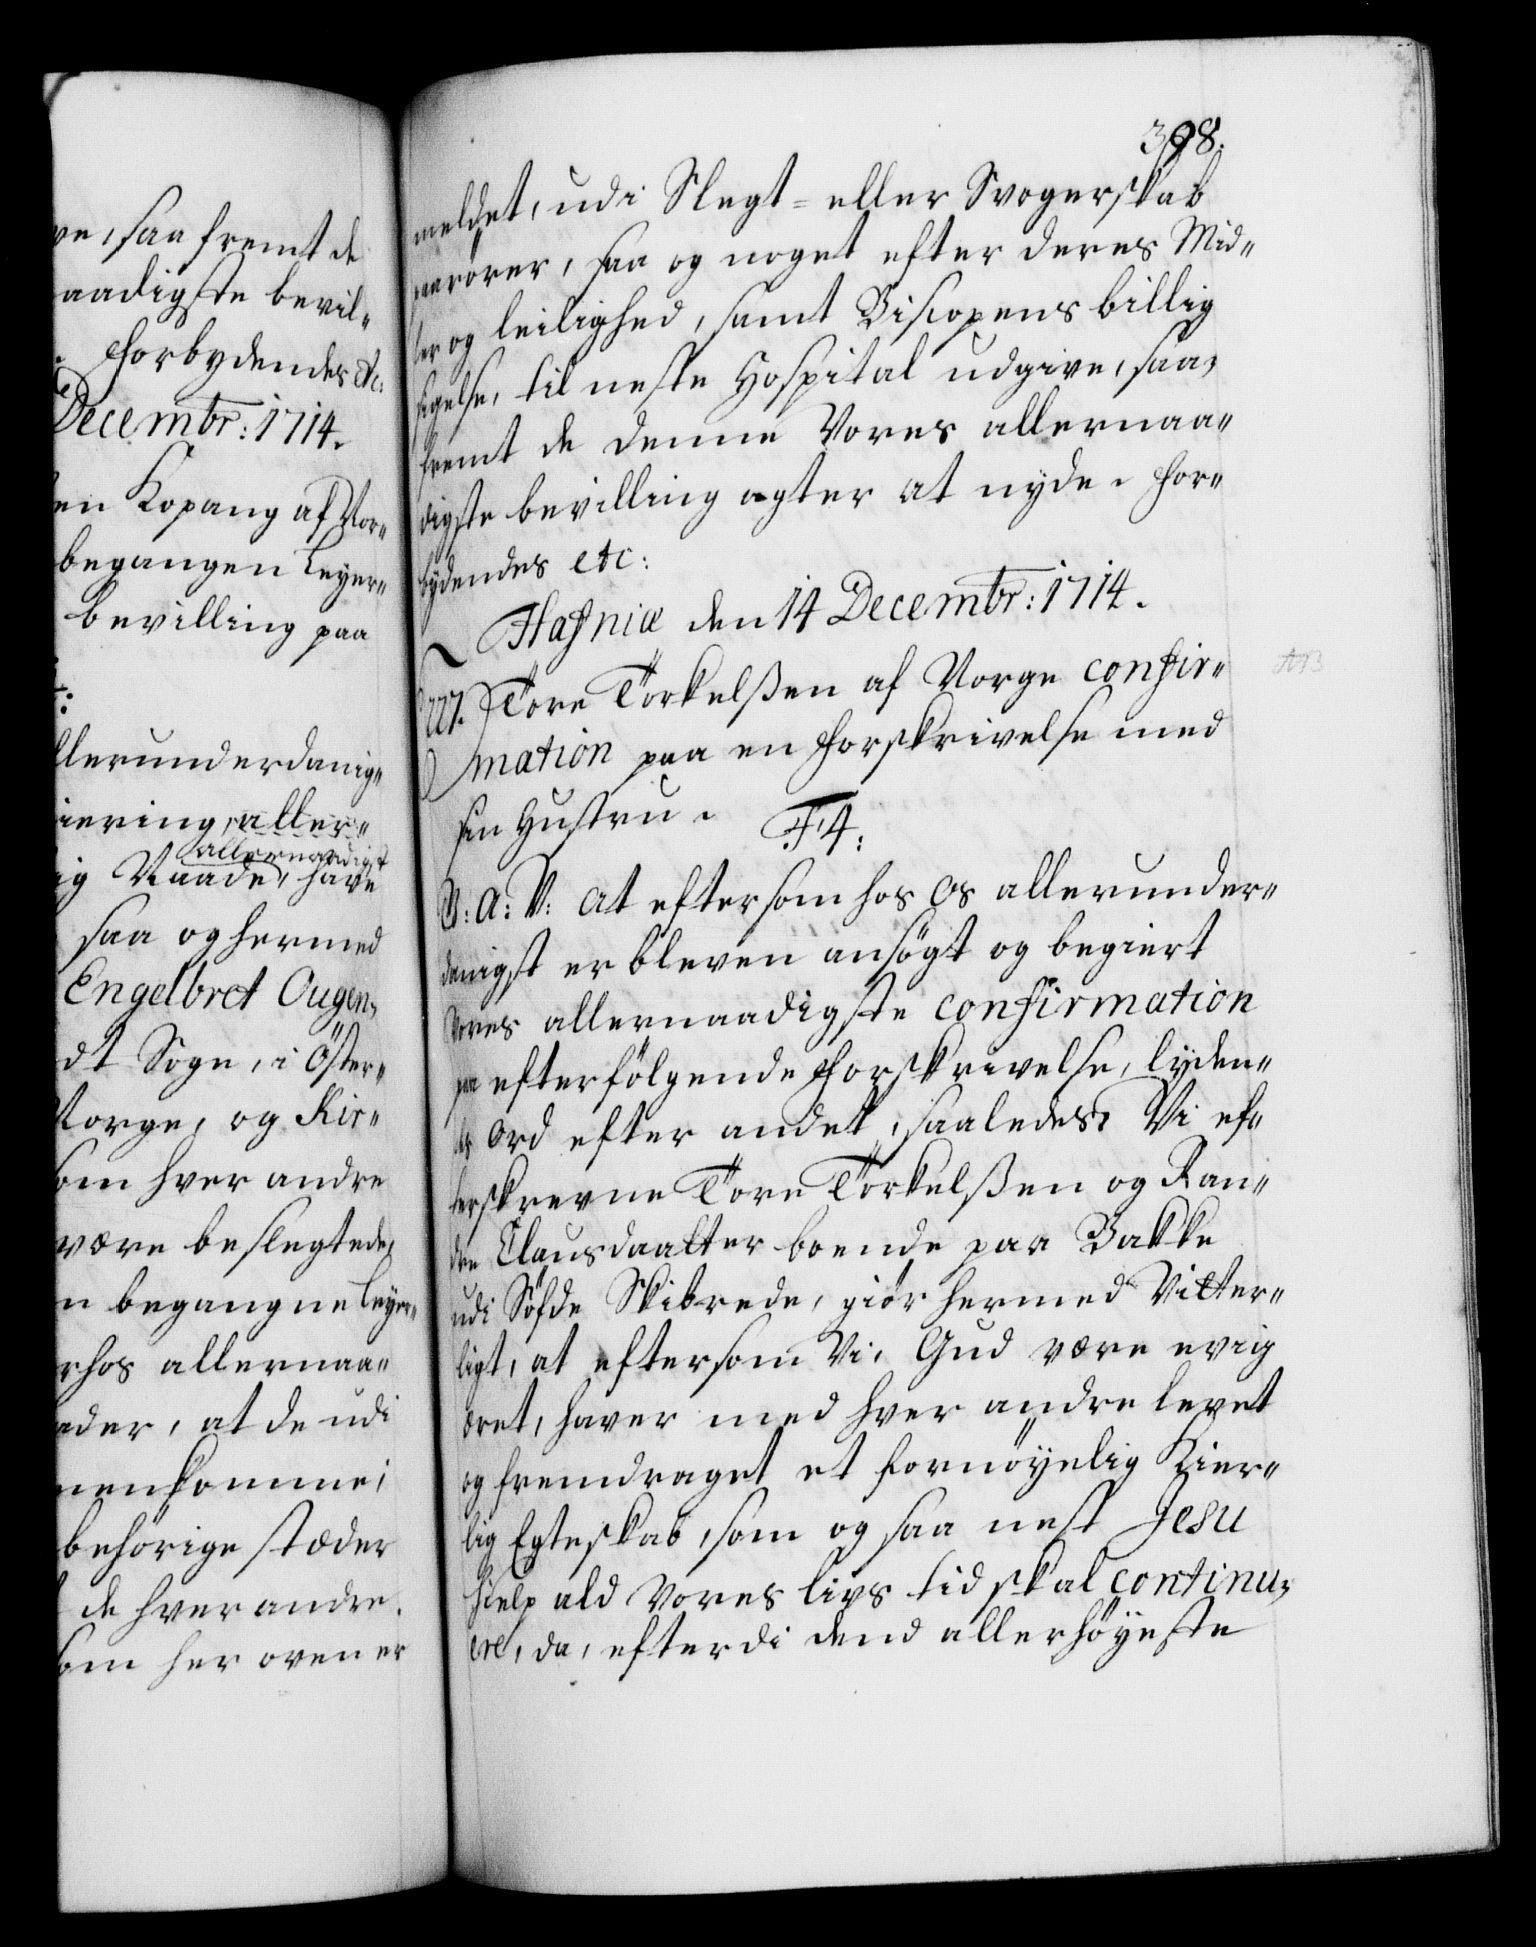 ve, saa fremt de
aadigste bevil„
Forbydendes etc:
Decembr: 1714.
en Kopang af Nor„
begangen Leyer„
bevilling paa
llerunderdanig„
iering, aller„
allernaadigst
ig Naade, have
saa og hermed
Engelbret Ougen„
dt Sogn, i Öster„
Norge, og Kir„
om hver andre
være beslegtede,
n begangne Leyer„
rhos allernaa„
ader, at de udi
menkomme;
behörige stæder
de hver andre.
som her oven er
398.
meldet, udi Slegt- eller Svogerskab
paarörer, saa og noget efter deres Mid„
ler og leilighed, samt Biscopens billig
sigelse, til neste Hospital udgive, saa„
fremt de denne Vores allernaa„
digste bevilling agter at nyde. For„
bydendes etc:
Hafniæ den 14 Decembr: 1714.
Tore Törkelsßen af Norge confir„
mation paa en Forskrivelse med
sin Hustru. F. 4:
G: A: V: At eftersom hos Os allerunder„
danigst er bleven ansögt og begiert
Vores allernaadigste confirmation
paa efterfölgende Forskrivelse, lyden„
des Ord efter andet, saaledes: Vi ef„
terskrevne Tore Törkelsßen og Ran„
die Clausdaatter boende paa Bakke
udi Söfde Skibrede, giör hermed Vitter„
ligt, at eftersom Vi, Gud være evig
æret, haver med hver andre levet
og fremdraget et fornöyelig Kier„
lig Egteskab, som og saa nest Jesu
hielp ald Vores livs tid skal continu„
ere, da, efterdi dend allerhöyeste